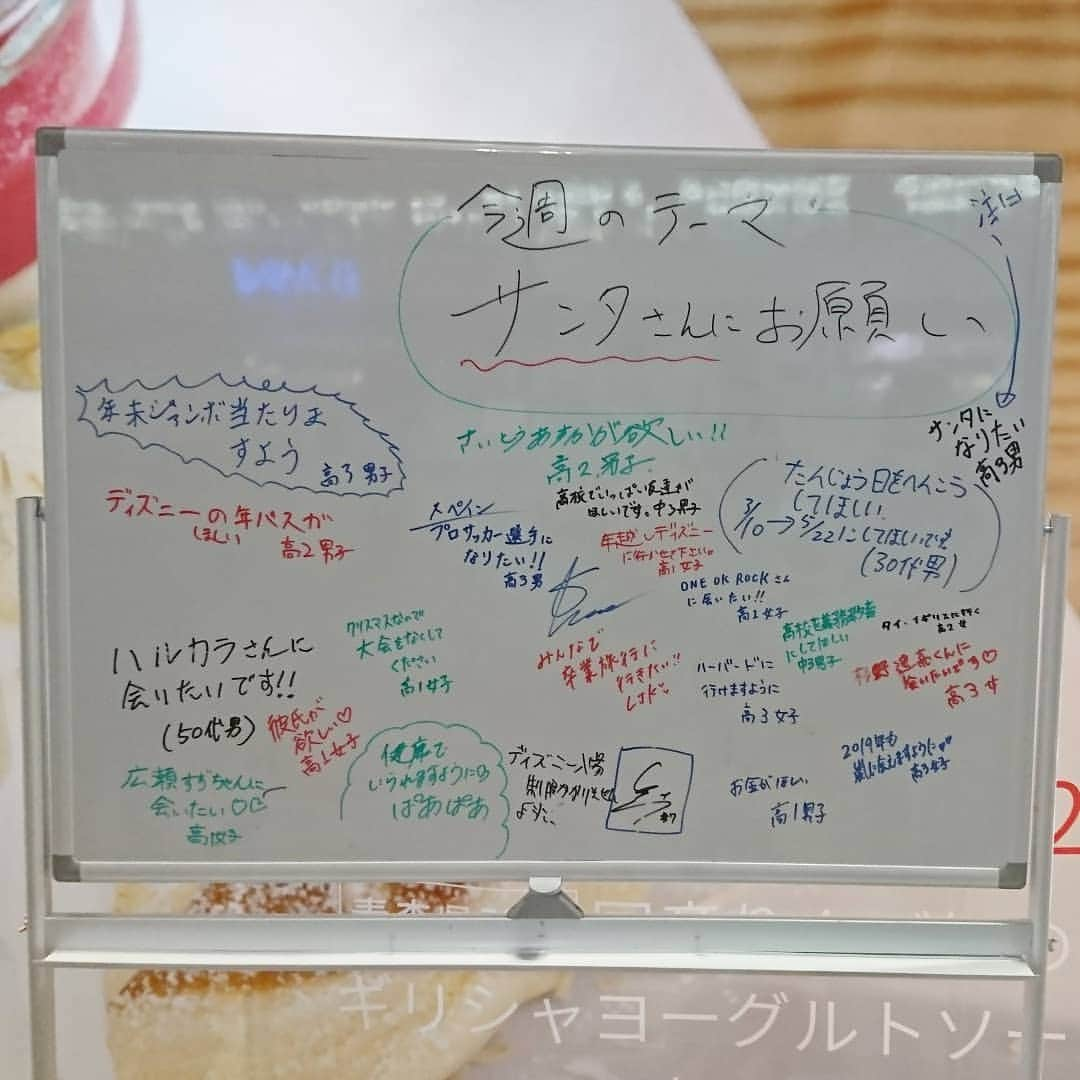 今週のテーマ
サンタさんにお願い
サンタに
なりたい
高3男
年末ジャンボ当たりま
すよう
高3男子
さいとうあすかが欲しい!!
高2男子
高校でいっぱい友達が
ほしいです。中3男子
たんじょう日をへんこう
してほしい
3/10→5/22にしてほしいです
(30代男)
ディズニーの年パスが
ほしい
高2男子
スペイン
プロサッカー選手に
なりたい!!
高3男
年越しディズニー
に行かせて下さい。
高1女子
ONE OK ROCKさん
に会いたい!!
高1女子
高校を義務教育
にしてほしい
中3男子
タイ・イギリスに行く
高2女
ハルカラさんに
会りたいです!!
(50代男)
クリスマスなので
大会をなくして
ください
高1女子
みんなで
卒業旅行に
行きたい!!
LJK
ハーバードに
行けますように
高3女子
杉野遥亮くんに
高3女
彼氏が
欲しい♡
高1女子
広瀬すずちゃんに
会いたい♡
健康で
いられますように
ぱあぱあ
ディズニー
#7
お金がほしい
高1男子
2019年も
嵐に会えますように
高3女子
ギリシャヨーグルトソー